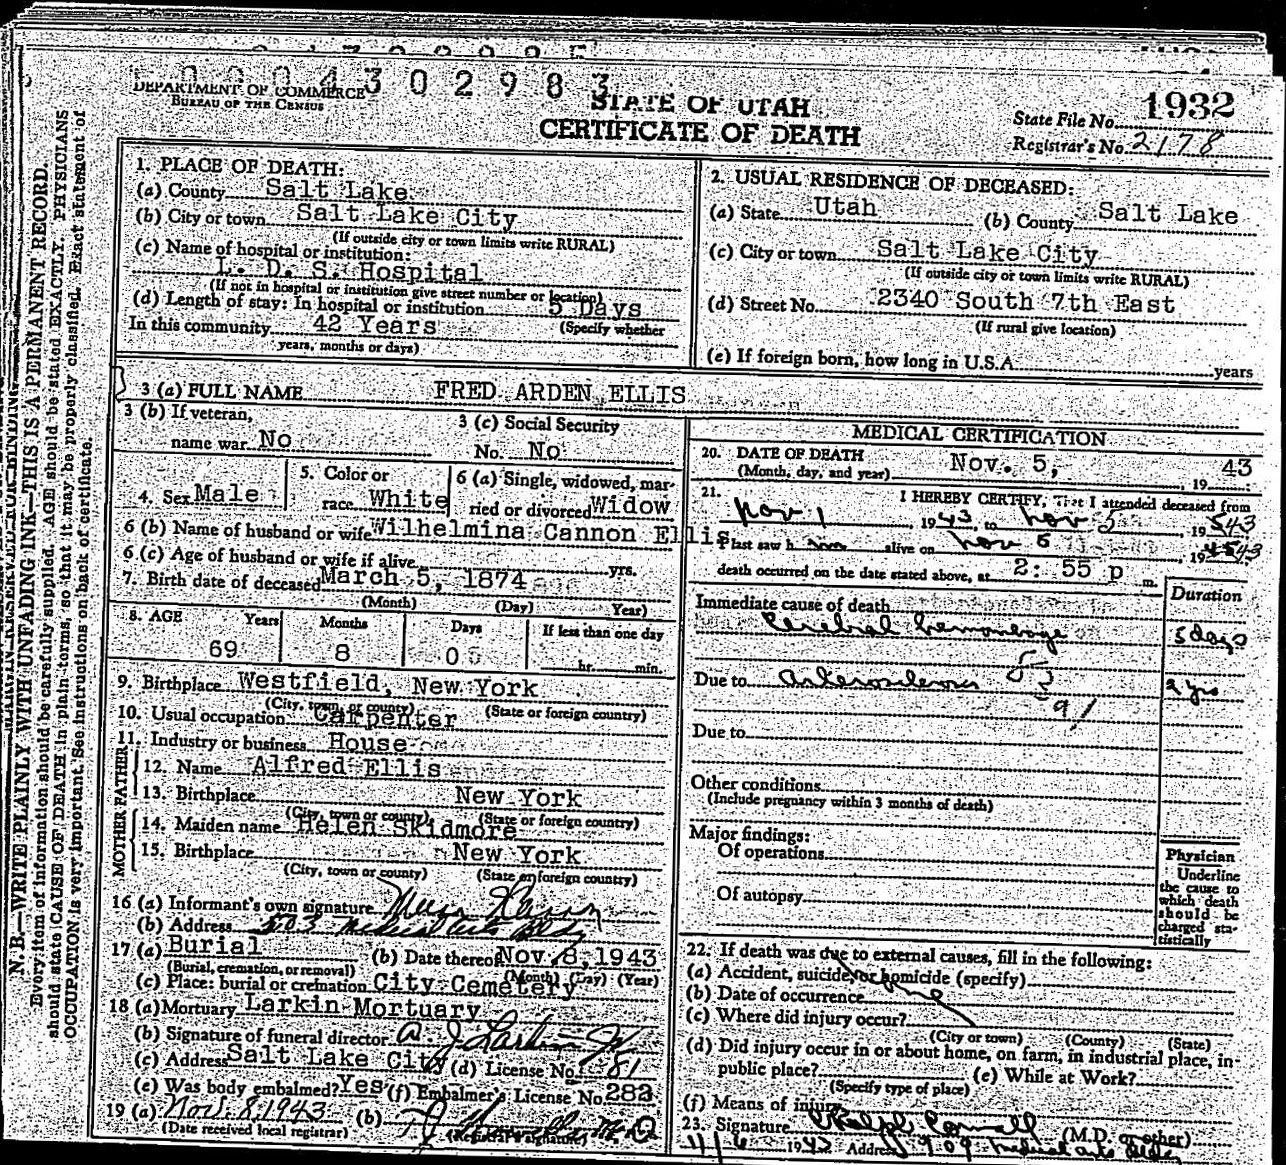 0004302983
DEPARTMENT OF COMMERCE
BUREAU OF THE CENSUS
STATE OF UTAH
CERTIFICATE OF DEATH
State File No. 1932
Registrar's No. 2178
N. B.—WRITE PLAINLY WITH UNFADING INK—THIS IS A PERMANENT RECORD.
Every item of information should be carefully supplied. AGE should be stated EXACTLY. PHYSICIANS
should state CAUSE OF DEATH in plain terms, so that it may be properly classified. Exact statement of
OCCUPATION is very important. See instructions on back of certificate.
1. PLACE OF DEATH:
(a) County Salt Lake
(b) City or town Salt Lake City
(If outside city or town limits write RURAL)
(c) Name of hospital or institution:
L. D. S. Hospital
(If not in hospital or institution give street number or location)
(d) Length of stay: In hospital or institution 5 Days
In this community 42 Years (Specify whether
years, months or days)
2. USUAL RESIDENCE OF DECEASED:
(a) State Utah (b) County Salt Lake
(c) City or town Salt Lake City
(If outside city or town limits write RURAL)
(d) Street No. 2340 South 7th East
(If rural give location)
(e) If foreign born, how long in U.S.A. years
3 (a) FULL NAME FRED ARDEN ELLIS
3 (b) If veteran,
name war No
3 (c) Social Security
No. No
4. Sex Male
5. Color or
race White
6 (a) Single, widowed, mar-
ried or divorced Widow
6 (b) Name of husband or wife Wilhelmina Cannon Ellis
6 (c) Age of husband or wife if alive yrs.
7. Birth date of deceased March 5, 1874
(Month) (Day) Year)
8. AGE Years Months Days If less than one day
69 8 0 hr. min.
9. Birthplace Westfield, New York
(City, town, or county) (State or foreign country)
10. Usual occupation Carpenter
11. Industry or business House
FATHER
12. Name Alfred Ellis
13. Birthplace New York
(City, town or county) (State or foreign country)
MOTHER
14. Maiden name Helen Skidmore
15. Birthplace New York
(City, town or county) (State or foreign country)
16 (a) Informant's own signature
(b) Address 503 Medical Arts Bldg
17 (a) Burial (b) Date thereof Nov. 8, 1943
(Burial, cremation, or removal) (Month) (Day) (Year)
(c) Place: burial or cremation City Cemetery
18 (a) Mortuary Larkin Mortuary
(b) Signature of funeral director A. J. Larkin Jr
(c) Address Salt Lake City (d) License No. 81
(e) Was body embalmed? Yes (f) Embalmer's License No. 283
19 (a) Nov. 8, 1943 (b) M D
(Date received local registrar) (Registrar's signature)
MEDICAL CERTIFICATION
20. DATE OF DEATH
(Month, day, and year) Nov. 5, , 19 43
21. I HEREBY CERTIFY, That I attended deceased from
Nov 1, 1943, to Nov 5, 1943
I last saw him alive on Nov 5, 1943
death occurred on the date stated above, at 2:55 p m.
Duration
Immediate cause of death
Cerebral hemorrhage 5 days
Due to Arteriosclerosis yrs
91
Due to
Other conditions
(Include pregnancy within 3 months of death)
Major findings:
Of operations
Of autopsy
Physician
Underline
the cause to
which death
should be
charged sta-
tistically
22. If death was due to external causes, fill in the following:
(a) Accident, suicide, or homicide (specify)
(b) Date of occurrence
(c) Where did injury occur?
(City or town) (County) (State)
(d) Did injury occur in or about home, on farm, in industrial place, in
public place? (e) While at Work?
(Specify type of place)
(f) Means of injury
23. Signature Ralph (M.D. or other)
11/6 1943 Address 909 Medical Arts Bldg